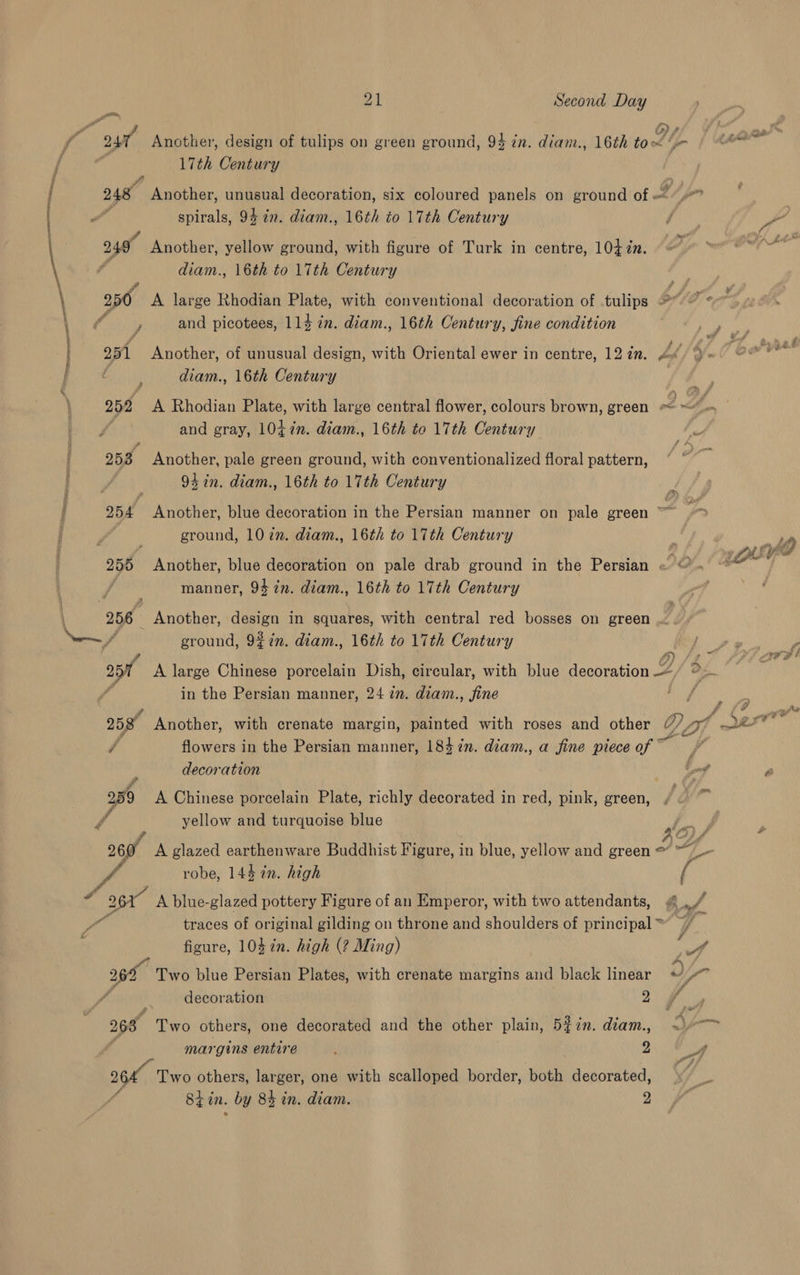 21 Second Day
247 Another, design of tulips on green ground, 9½ in. diam., 16th to
17th Century
248 Another, unusual decoration, six coloured panels on ground of
spirals, 9½ in. diam., 16th to 17th Century
249 Another, yellow ground, with figure of Turk in centre, 10¼ in.
diam., 16th to 17th Century
250 A large Rhodian Plate, with conventional decoration of tulips
and picotees, 11½ in. diam., 16th Century, fine condition
251 Another, of unusual design, with Oriental ewer in centre, 12 in.
diam., 16th Century
252 A Rhodian Plate, with large central flower, colours brown, green
and gray, 10¼ in. diam., 16th to 17th Century
253 Another, pale green ground, with conventionalized floral pattern,
9½ in. diam., 16th to 17th Century
254 Another, blue decoration in the Persian manner on pale green
ground, 10 in. diam., 16th to 17th Century
255 Another, blue decoration on pale drab ground in the Persian
manner, 9½ in. diam., 16th to 17th Century
256 Another, design in squares, with central red bosses on green
ground, 9¾ in. diam., 16th to 17th Century
257 A large Chinese porcelain Dish, circular, with blue decoration
in the Persian manner, 24 in. diam., fine
258 Another, with crenate margin, painted with roses and other
flowers in the Persian manner, 18½ in. diam., a fine piece of
decoration
259 A Chinese porcelain Plate, richly decorated in red, pink, green,
yellow and turquoise blue
260 A glazed earthenware Buddhist Figure, in blue, yellow and green
robe, 14½ in. high
261 A blue-glazed pottery Figure of an Emperor, with two attendants,
traces of original gilding on throne and shoulders of principal
figure, 10½ in. high (? Ming)
262 Two blue Persian Plates, with crenate margins and black linear
decoration 2
263 Two others, one decorated and the other plain, 5¾ in. diam.,
margins entire 2
264 Two others, larger, one with scalloped border, both decorated,
8¼ in. by 8½ in. diam. 2